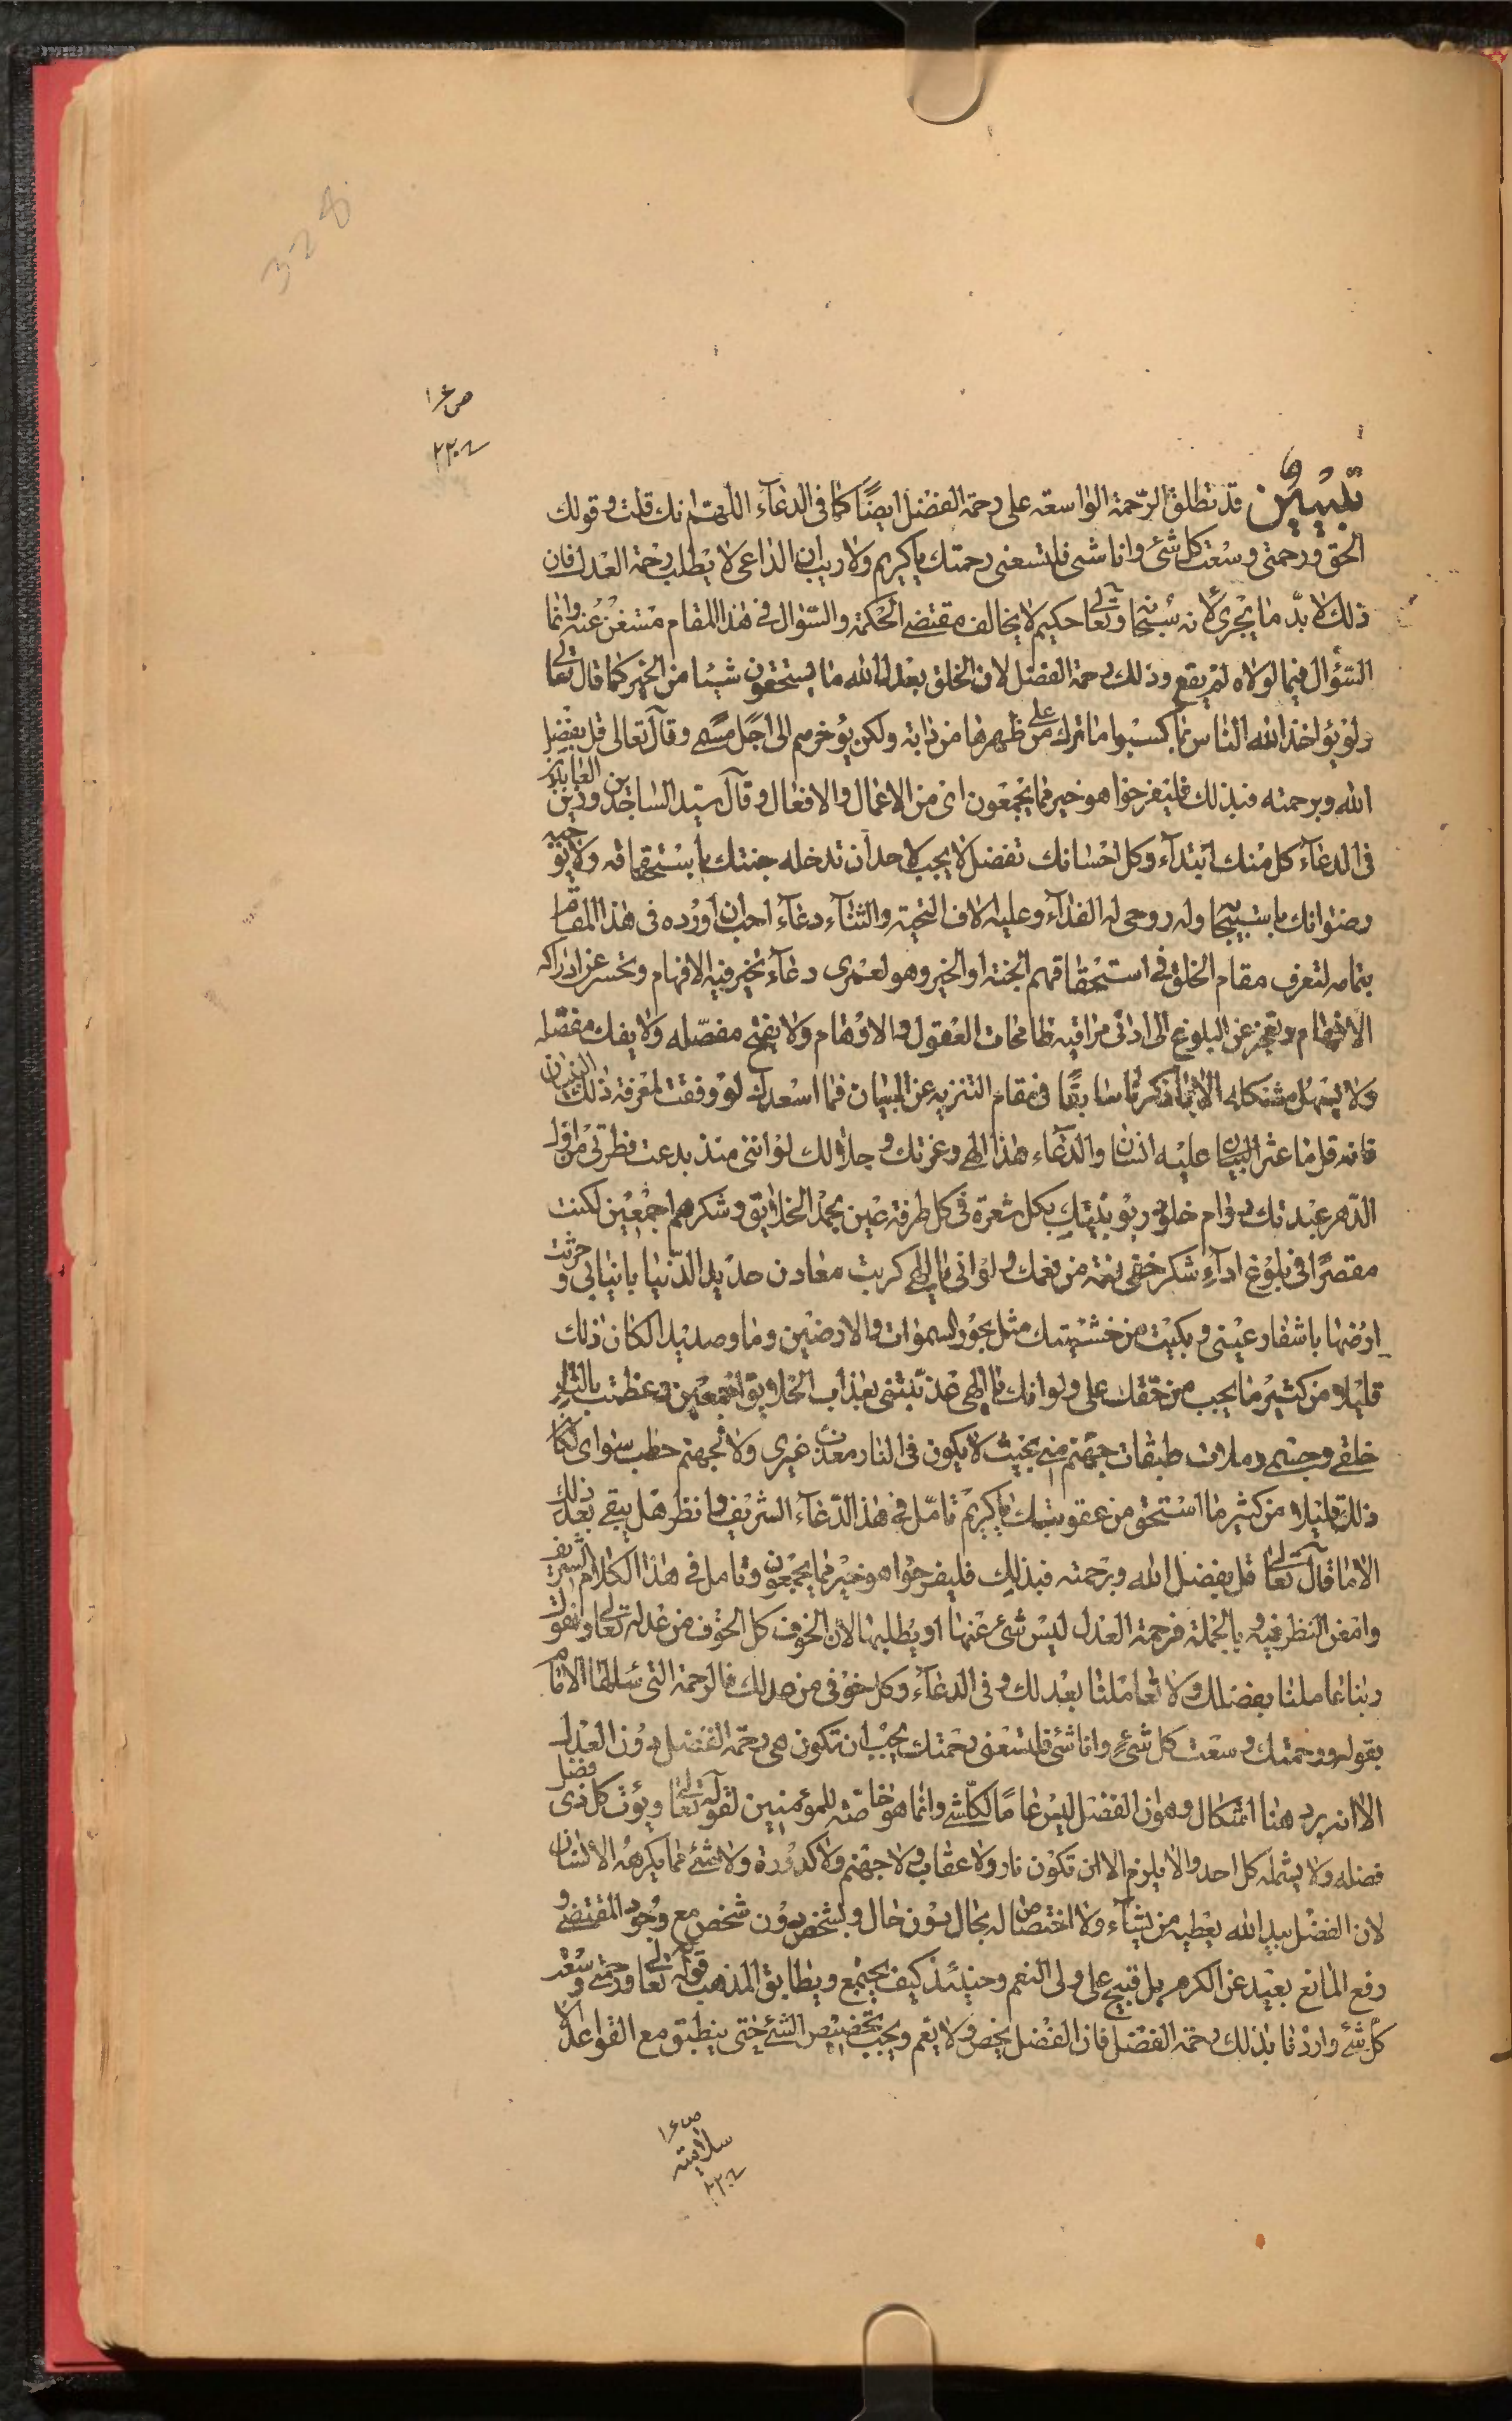 328
ص ١۶
تبيين قد تطلق الرّحمة الواسعة على رحمة الفضل ايضًا كما فى الدعآء اللّهمّ انك قلت و قولك
الحق و رحمتى وسعت كل شئ وانا شئ فلتسعنى رحمتك يا كريم ولا ريب ان الداعى لا يطلب رحمة العدل فان
ذلك لا بدّ ما يجرى لانه سبحانه وتعالى حكيم لا يخالف مقتضى الحكمة والسّؤال فى هذا المقام مستغن عنه وانما
السّؤال فيما لولاه لم يقع وذلك رحمة الفضل لان الخلق بعدل الله ما يستحقون شيئا من الخير كما قال تعالى
ولو يؤاخذ الله الناس بما كسبوا ما ترك على ظهرها من دابة ولكن يؤخرهم الى اجل مسمى وقال تعالى قل بفضل
الله وبرحمته فبذلك فليفرحوا هو خير مما يجمعون اى من الاعمال والافعال و قال سيّد الساجدين وزين العابدين
فى الدعآء كل منك ابتدآء وكل احسانك تفضل لا يجب لاحد ان تدخله جنتك باستحقاقه ولا يوجبه
رضوانك باستيجابه وله روحى له الفدآء وعليه الاف التحية والثنآء دعآء احب ان اورده فى هذا المقام
بتمامه لتعرف مقام الخلق فى استحقاقهم الجنة او الخير وهو لعمرى دعآء تحير فيه الافهام وتحسر عن ادراكه
الافهام وتعجز عن البلوغ الى ادنى مراقيه طامحات العقول والاوهام ولا يفتح مفصّله ولا يفك مفصّله
ولا يسهل مشكله الا بما ذكرنا سابقًا فى مقام التنزيه عن البيان فما اسعدك لو وفقت لمعرفة ذلك البيان
فانه قل ما عثر عليه انسان والدعآء هذا الهى وعزتك و جلالك لو اننى منذ بدعت فطرتى من اول
الدّهر عبدتك دوام خلود ربوبيّتك بكل شعرة فى كل طرفة عين بحمد الخلايق وشكرهم اجمعين لكنت
مقصرًا فى بلوغ ادآء شكر خفى نعمة من نعمك ولو انى يا الهى كربت معادن حديد الدّنيا بانيابى و حرثت
ارضها باشفار عينى و بكيت من خشيتك مثل بحور السموات والارضين دما وصديدا لكان ذلك
قليلا من كثير ما يجب من حقك على ولو انك يا الهى عذبتنى بعذاب الخلايق اجمعين و عظمت بالنار
خلقى وجسمى وملات طبقات جهنم منى بحيث لا يكون فى النار معذب غيرى ولا لجهنم حطب سواى لكان
ذلك قليلا من كثير ما استحق من عقوبتك يا كريم تامّل فى هذا الدّعآء الشريف وانظر هل يبقى بعد ذلك
الا ما قال تعالى قل بفضل الله وبرحمته فبذلك فليفرحوا هو خير مما يجمعون وتامل فى هذا الكلام الشريف
وامعن النظر فيه و بالجملة فرحمة العدل ليس شئ عنها او يطلبها لان الخوف كل الخوف من عدله تعالى ونقول
ربنا عاملنا بفضلك ولا تعاملنا بعدلك و فى الدعآء وكل خوفى من عدلك فالرحمة التى سئلها الامام
بقوله ورحمتك وسعت كل شئ وانا شئ فلتسعنى رحمتك يجب ان تكون هى رحمة الفضل دون العدل
الا انه يرد هنا اشكال وهو ان الفضل ليس عامًا لكلّ شئ وانما هو خاصّة للمؤمنين لقوله تعالى ويؤت كل ذى فضل
فضله ولا يشمله كل احد والا يلزم الا ان تكون نار ولا عقاب ولا جهنم ولا كدورة ولا شئ مما يكرهه الانسان
لان الفضل بيد الله يعطيه من يشآء ولا اختصاص له بحال دون حال و بشخص دون شخص مع وجود المقتضى و
رفع المانع بعيد عن الكرم بل قبيح على ولى النعم وحينئذ كيف يجتمع ويطابق المذهب قوله تعالى ورحمتى وسعت
كل شئ واردنا بذلك رحمة الفضل فان الفضل يخص ولا يعم ويجب تخصيص الشئ حتى ينطبق مع القواعد
ص ١۶